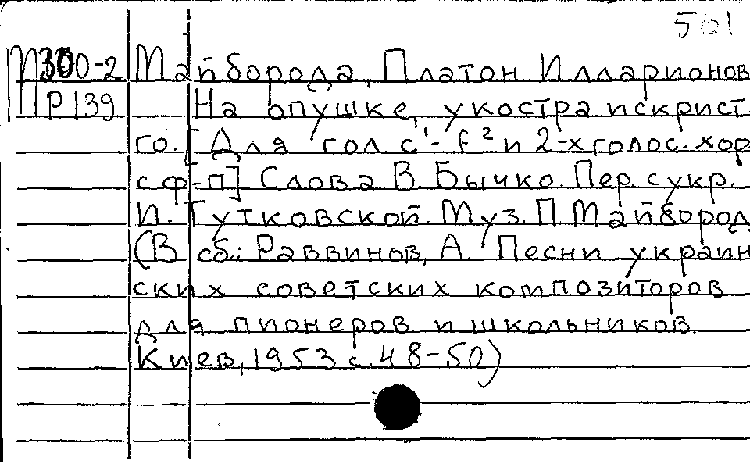 501
М300-2 Майборода, Платон Илларионов
П Р139 На опушке, у костра искрист
го. [Для гол c¹-f² и 2-х голос. хор
с ф-п] Слова В. Бычко. Пер. с укр.
И. Гутковской. Муз. П. Майбород
(В сб.: Раввинов, А. Песни украин
ских советских композиторов
для пионеров и школьников.
Киев, 1953 с. 48-50)